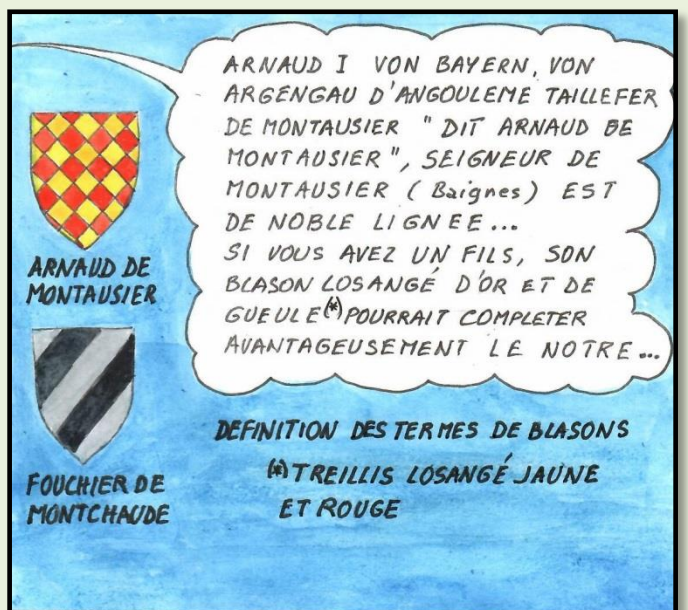 ARNAUD I VON BAYERN, VON
ARGENGAU D'ANGOULEME TAILLEFER
DE MONTAUSIER " DIT ARNAUD BE
MONTAUSIER", SEIGNEUR DE
MONTAUSIER ( Baignes) EST
DE NOBLE LIGNEE...
SI VOUS AVEZ UN FILS, SON
BLASON LOSANGÉ D'OR ET DE
GUEULE(*) POURRAIT COMPLETER
AVANTAGEUSEMENT LE NOTRE...
ARNAUD DE
MONTAUSIER
FOUCHIER DE
MONTCHAUDE
DEFINITION DES TERMES DE BLASONS
(*) TREILLIS LOSANGÉ JAUNE
ET ROUGE